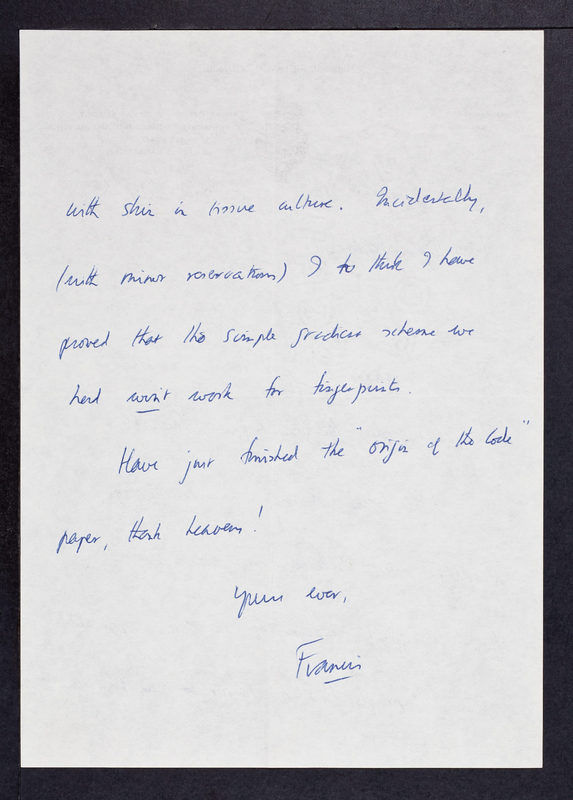 with skin in tissue culture. Incidentally,
(with minor reservations) I do think I have
proved that the simple gradient scheme we
had won't work for fingerprints.
Have just finished the "origin of the code"
paper, thank heavens!
Yours ever,
Francis